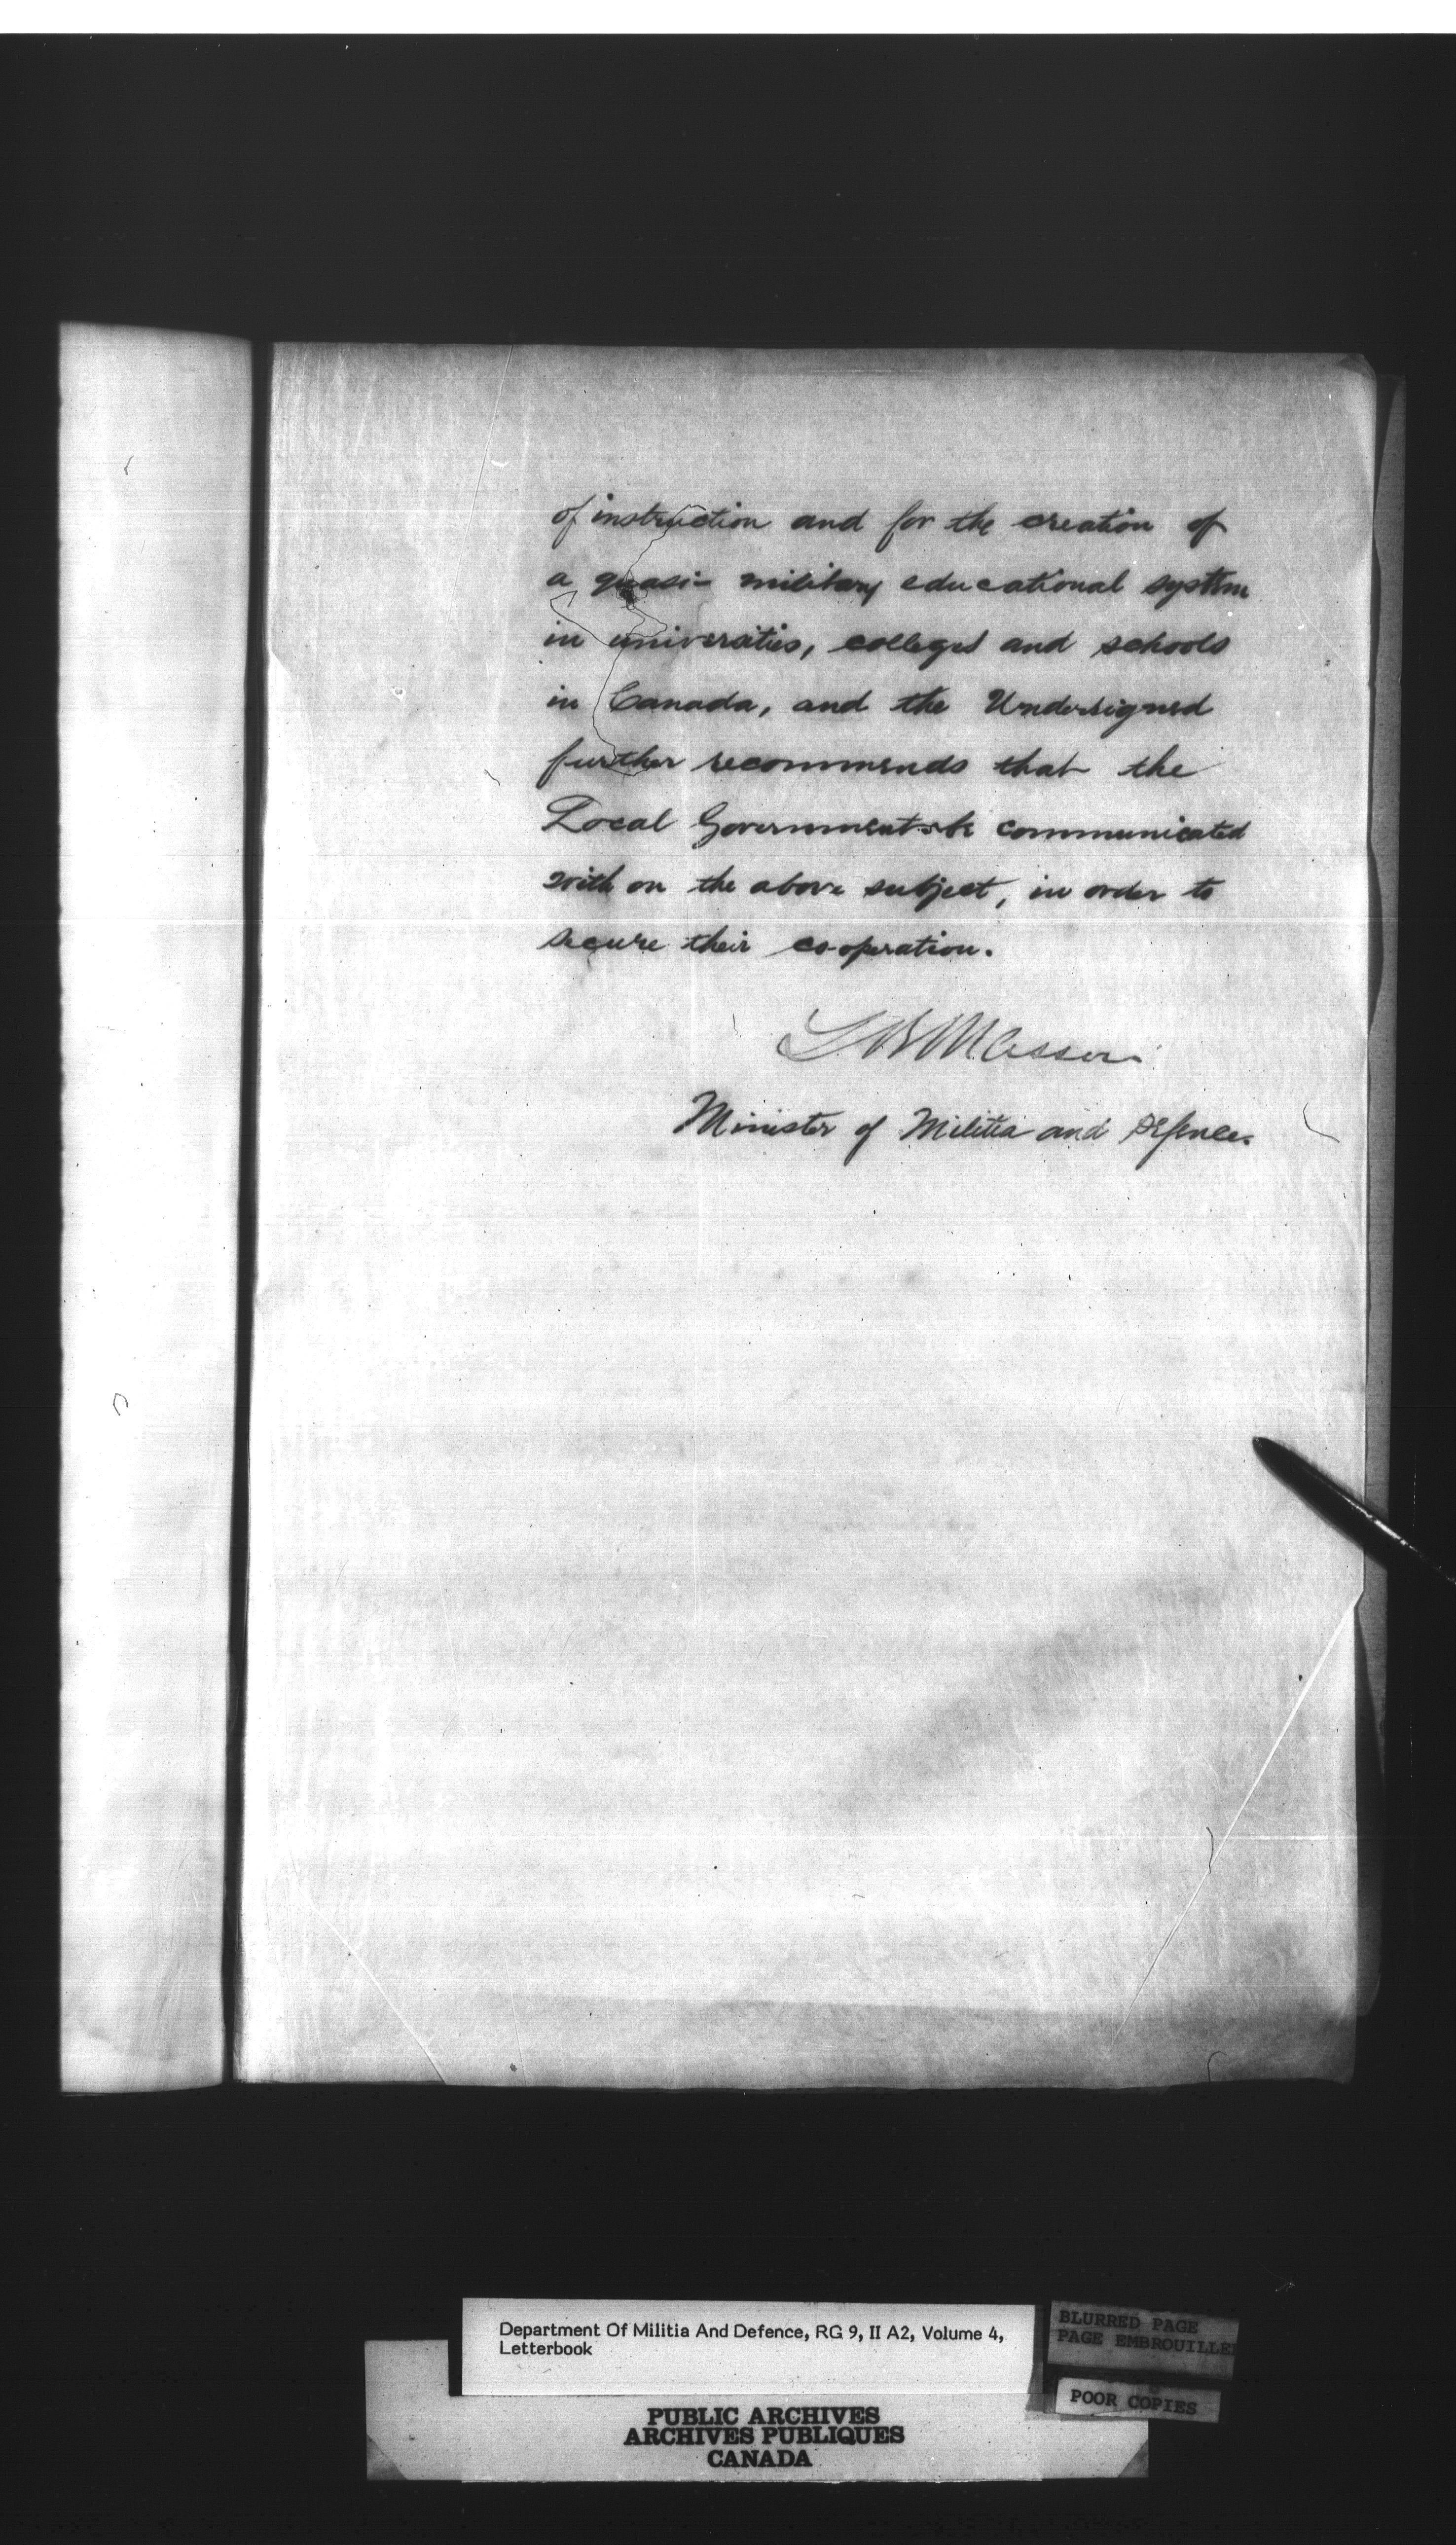 of instruction and for the creation of
a quasi- military educational system
in universities, colleges and schools
in Canada, and the Undersigned
further recommends that the
Local Governments be communicated
with on the above subject, in order to
secure their co-operation.
L R Masson
Minister of Militia and Defence.
Department Of Militia And Defence, RG 9, II A2, Volume 4,
Letterbook
BLURRED PAGE
PAGE EMBROUILLEE
POOR COPIES
PUBLIC ARCHIVES
ARCHIVES PUBLIQUES
CANADA